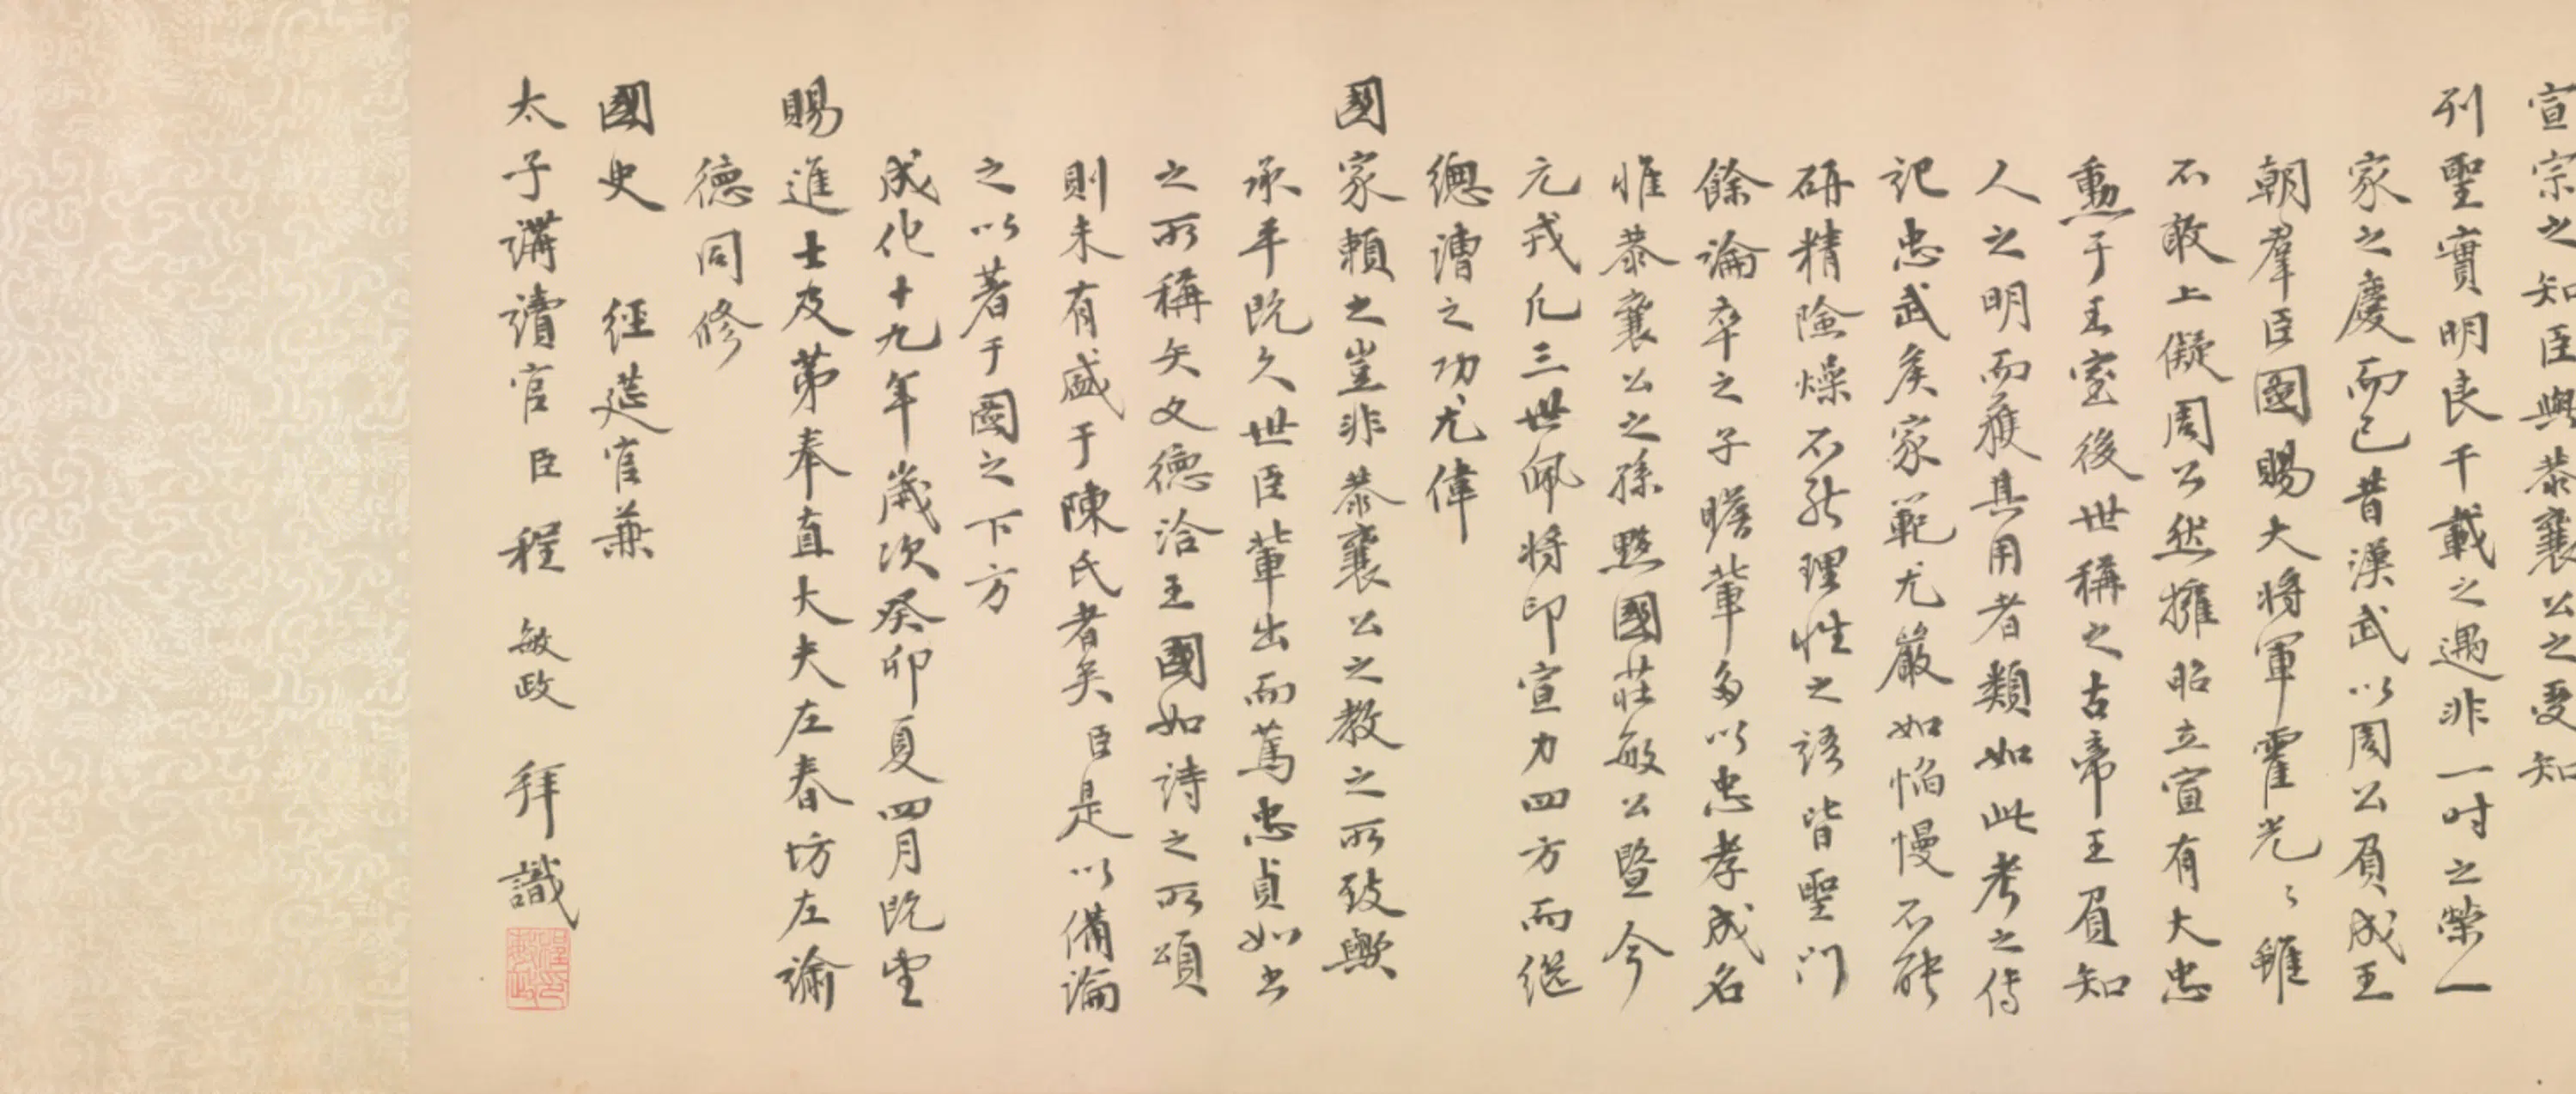 宣宗之知臣與恭襄公之受知
列聖實明良千載之遇非一時之榮一
家之慶而已昔漢武以周公負成王
朝羣臣圖賜大將軍霍光〻雖
不敢上儗周公然擁昭立宣有大忠
勳于王室後世稱之古帝王眉知
人之明而獲其用者類如此考之傳
記忠武矦家範尤嚴如慆慢不能
研精險燥不能理性之語皆聖門
餘論卒之子瞻輩多以忠孝成名
惟恭襄公之孫黟國莊敏公暨今
元戎凡三世佩將印宣力四方而繼
總漕之功尤偉
國家賴之豈非恭襄公之教之所致歟
承平既久世臣輩出而篤忠貞如書
之所稱矢文德洽王國如詩之所頌
則未有盛于陳氏者矣臣是以備論
之以著于圖之下方
成化十九年歲次癸卯夏四月既望
賜進士及第奉直大夫左春坊左諭
德同修
國史 經筵官兼
太子講讀官臣程敏政拜識